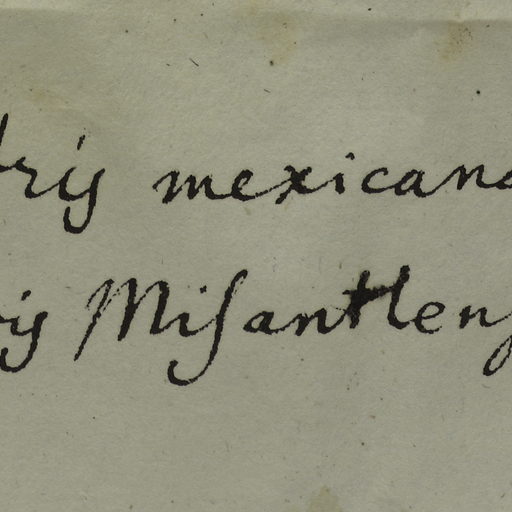 tris mexicana
is Misantlens